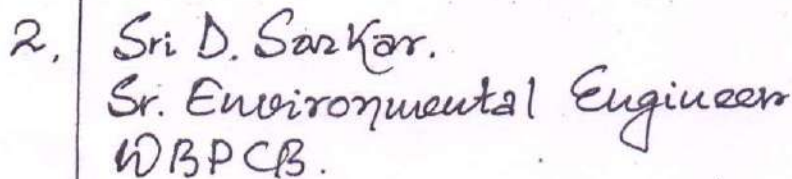 2. Sri D. Sarkar.
Sr. Environmental Engineer
WBPCB.